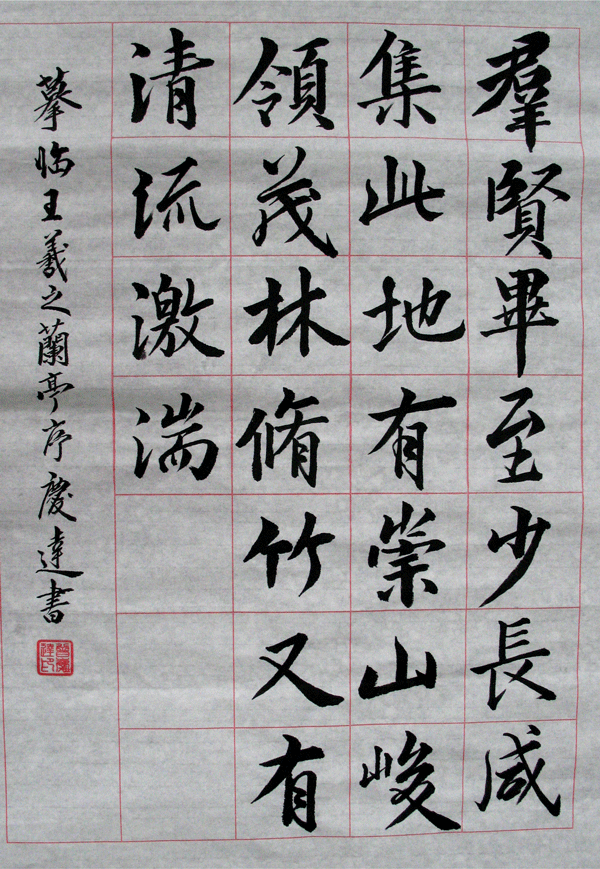 羣賢畢至少長咸
集此地有崇山峻
領茂林脩竹又有
清流激湍
摹临王羲之蘭亭序慶達書